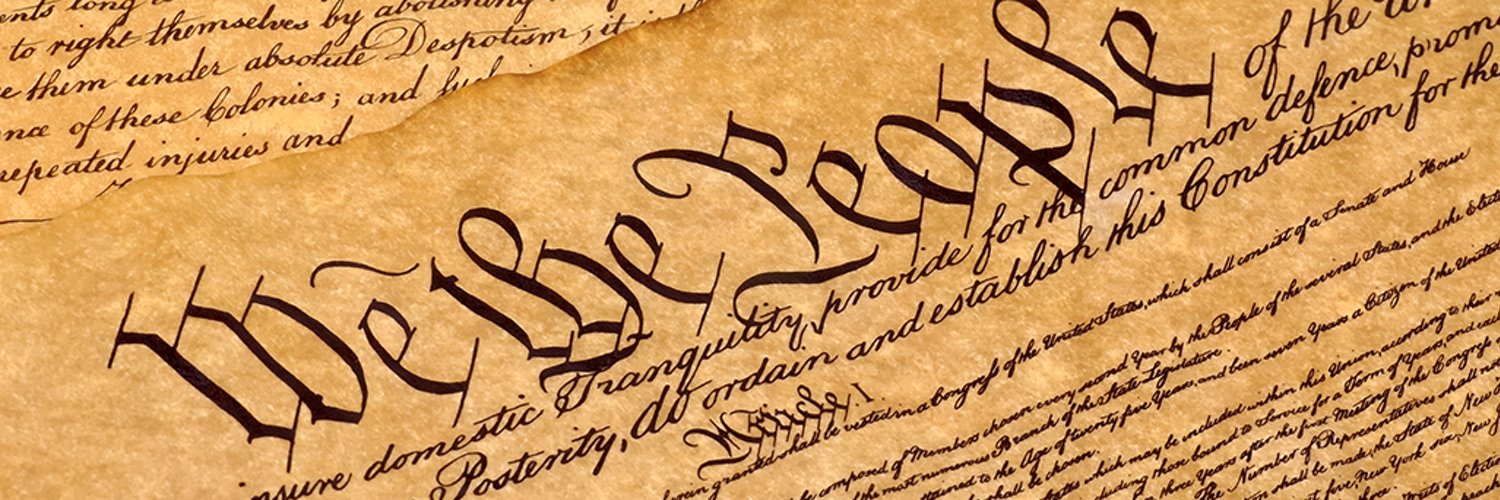 ents long
to right themselves by abolishing
them under absolute Despotism, it is
nce of these Colonies; and such
repeated injuries and
We the People
of the
insure domestic Tranquility, provide for the common defence, promo
Posterity, do ordain and establish this Constitution for the
Article I.
herein granted shall be vested in a Congress of the United States, which shall consist of a Senate and House
be composed of Members chosen every second Year by the People of the several States, and the Elect
the most numerous Branch of the State Legislature.
attained to the Age of twenty five Years, and been seven Years a Citizen of the United
shall be chosen.
States which may be included within this Union, according to their
cluding those bound to Service for a Term of Years, and
three Years after the first Meeting of the Congress
The Number of Representatives shall not
shall be made, the State of New
five, New York six, New